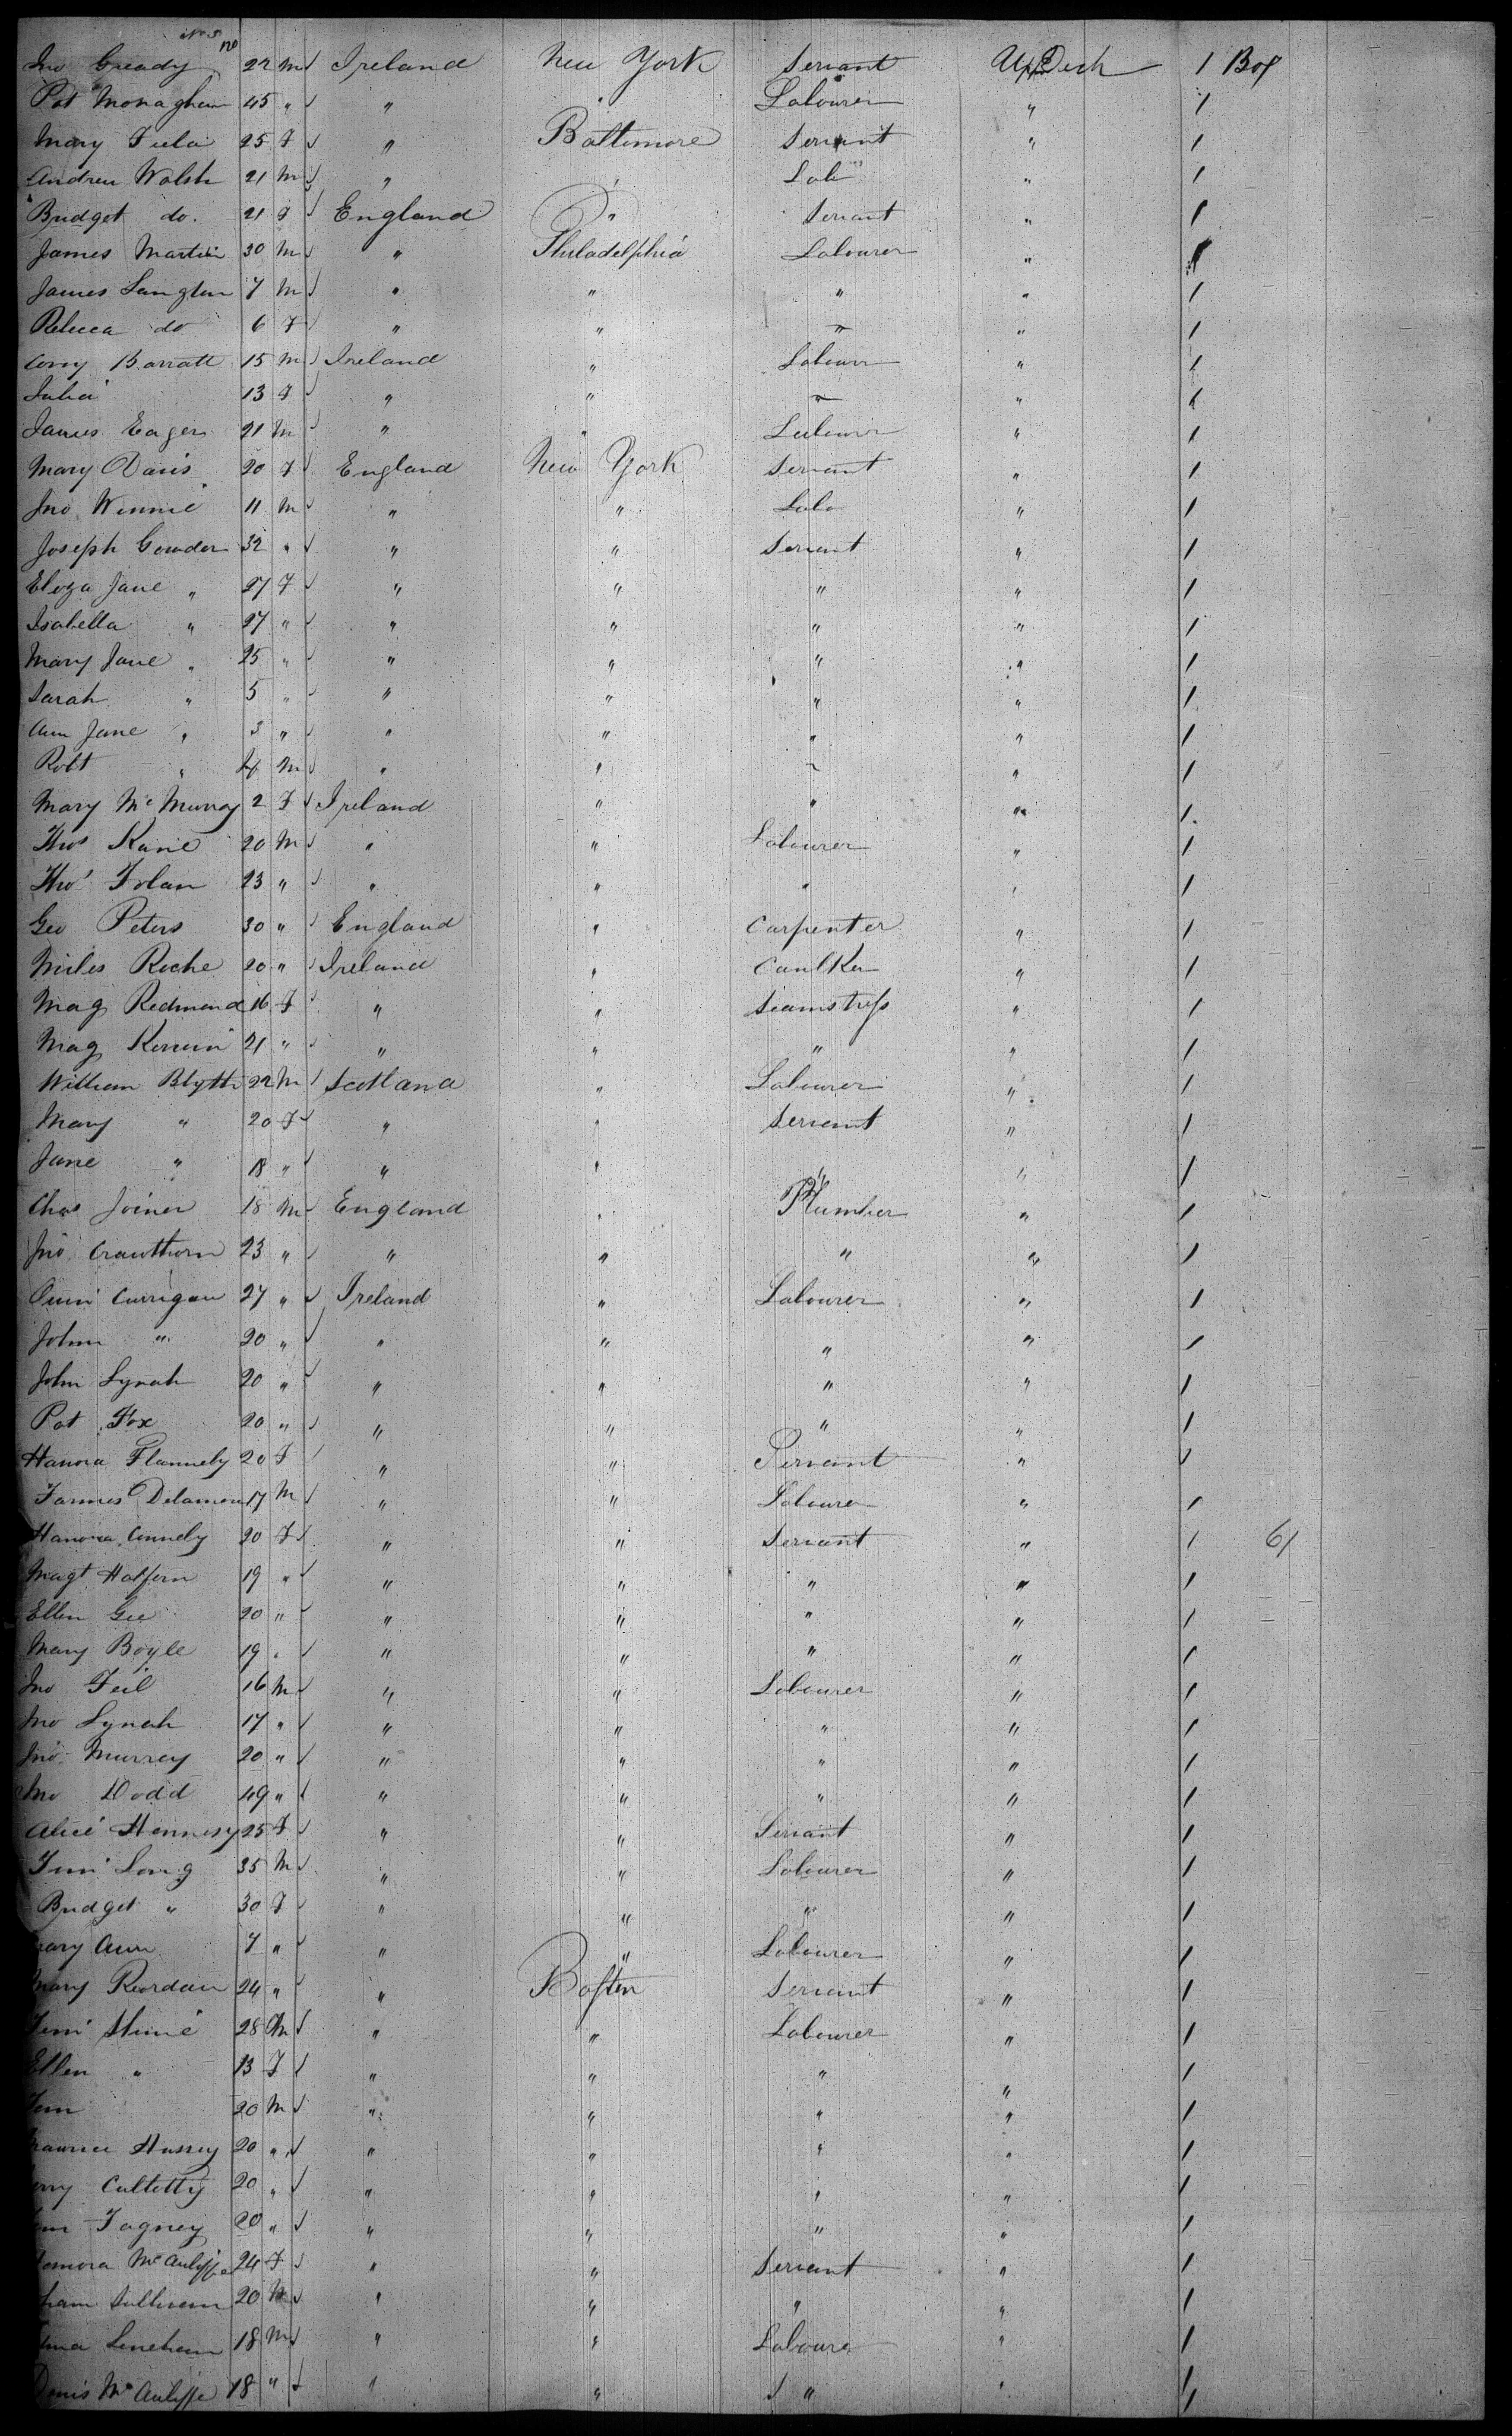 No 5 no
Jno Gready 22 M Ireland New York Servant Up Deck 1 Box
Pat Monaghan 45 " " " Labourer " 1
Mary 25 F " Baltimore Servant " 1
Andrew Walsh 21 M " " Lab " 1
Bridget do. 21 F England " Servant " 1
James Martin 30 M " Philadelphia Labourer " 1
James Langton 7 M " " " " 1
Rebecca do 6 F " " " " 1
Barratt 15 M Ireland " Labour " 1
Julia 13 F " " " " 1
James Eagen 21 M " " Labour " 1
Mary Davis 20 F England New York Servant " 1
Jno Winnie 11 M " " Labo " 1
Joseph Gowder 32 " " " Servant " 1
Eliza Jane " 27 F " " " " 1
Isabella " 27 " " " " " 1
Mary Jane " 25 " " " " " 1
Sarah " 5 " " " " " 1
Ann Jane " 3 " " " " " 1
Robt " 4 M " " " " 1
Mary McMurray 2 F Ireland " " " 1
Thos Kane 20 M " " Labourer " 1
Thos Folan 23 " " " " " 1
Geo Peters 30 " England " Carpenter " 1
Miles Roche 20 " Ireland " Caulker " 1
Mag Redmond 16 F " " Seamstress " 1
Mag 21 " " " " " 1
William Blyth 22 M Scotland " Labourer " 1
Mary " 20 F " " Servant " 1
Jane " 18 " " " " " 1
Chas Joiner 18 M England " Plumber " 1
Jno Crawthorn 23 " " " " " 1
Currigan 27 " Ireland " Labourer " 1
John " 20 " " " " " 1
John Lynah 20 " " " " " 1
Pat Fox 20 " " " " " 1
Hanora Flannely 20 F " " Servant " 1
James Delamere 17 M " " Laboure " 1
Hanora Connely 20 F " " Servant " 1 61
Magt Halfern 19 " " " " " 1
Ellen Gee 20 " " " " " 1
Mary Boyle 19 " " " " " 1
Jno Feil 16 M " " Labourer " 1
Jno Lynah 17 " " " " " 1
Jno Murray 20 " " " " " 1
Jno Dodd 49 " " " " " 1
Alice Hennesy 25 F " " Servant " 1
Tim Long 35 M " " Labourer " 1
Bridget " 30 F " " " " 1
Mary Ann 7 " " " Labourer " 1
Mary Reordan 24 " " Boston Servant " 1
28 M " " Labourer " 1
Ellen " 13 F " " " " 1
20 M " " " " 1
Maurice Hussey 20 " " " " " 1
20 " " " " " 1
Fagney 20 " " " " " 1
Honora McAuliffe 24 F " " Servant " 1
Sullivan 20 M " " " " 1
Lenehan 18 M " " Laboure " 1
Denis McAuliffe 18 " " " " " 1